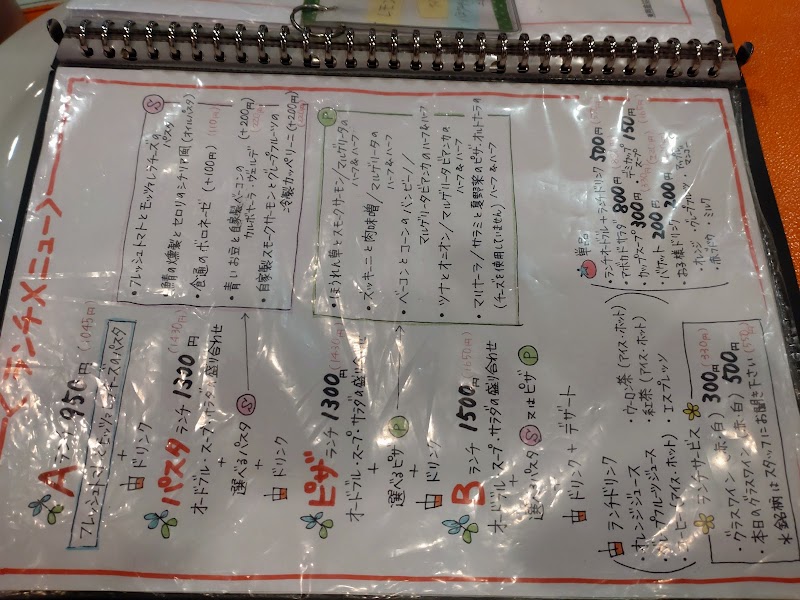 ランチメニュー
A ランチ 950円 (1,045円)
フレッシュトマトとモッツァレラチーズのパスタ
+
ドリンク
パスタ ランチ 1300円 (1430円)
オードブル・スープ・サラダの盛り合わせ
+
選べるパスタ S
+
ドリンク
ピザ ランチ 1300円 (1430円)
オードブル・スープ・サラダの盛り合わせ
+
選べるピザ P
+
ドリンク
B ランチ 1500円 (1650円)
オードブル・スープ・サラダの盛り合わせ
+
選べるパスタ S 又はピザ P
+
ドリンク + デザート
S
・フレッシュトマトとモッツァレラチーズの
パスタ
燻製とセロリのシチリア風 (オイルパスタ)
・食通のボロネーゼ (+100円) (110円)
・青いお豆と自家製ベーコンの (+200円)
カルボナーラ・ヴェルデ
・自家製スモークサーモンとグレープフルーツの
冷製カッペリーニ (+200円)
P
・ほうれん草とスモークサーモン/マルゲリータの
ハーフ&ハーフ
・ズッキーニと肉味噌/マルゲリータの
ハーフ&ハーフ
・ベーコンとコーンのバンビーノ/
マルゲリータビアンカのハーフ&ハーフ
・ツナとオニオン/マルゲリータビアンカの
ハーフ&ハーフ
・マリナーラ/サラミと夏野菜のピザ オルトナーラの
(チーズを使用していません) ハーフ&ハーフ
ランチドリンク
・オレンジジュース
・グレープフルーツジュース
・コーヒー (アイス・ホット)
・ウーロン茶 (アイス・ホット)
・紅茶 (アイス・ホット)
・エスプレッソ
ランチサービス
・グラスワイン (赤・白) 300円 (330円)
・本日のグラスワイン (赤・白) 500円 (550円)
*銘柄はスタッフにお聞き下さい
単品
・ランチオードブル+ランチドリンク 500円
・アボカドサラダ 800円
・カップスープ 300円 ・デミカップスープ 150円
・バケット 200円
・お子様ドリンク 200円
・オレンジ ・グレープフルーツ
・ミルク